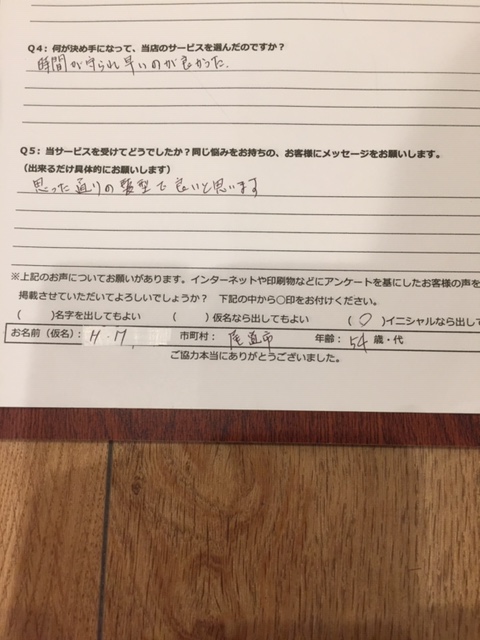 Q4：何が決め手になって、当店のサービスを選んだのですか？
時間が守られ早いのが良かった.
Q5：当サービスを受けてどうでしたか？同じ悩みをお持ちの、お客様にメッセージをお願いします。
（出来るだけ具体的にお願いします）
思った通りの髪型で良いと思います
※上記のお声についてお願いがあります。インターネットや印刷物などにアンケートを基にしたお客様の声を
掲載させていただいてよろしいでしょうか？　下記の中から〇印をお付けください。
(　　)名字を出してもよい　　(　　)仮名なら出してもよい　　(　○　)イニシャルなら出して
お名前（仮名）：H．M　市町村：尾道市　年齢：54 歳・代
ご協力本当にありがとうございました。